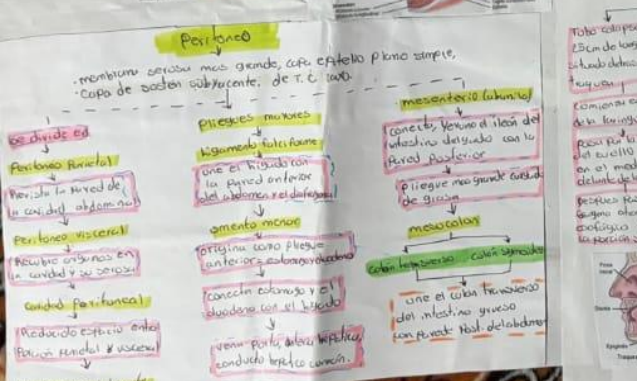 Peritoneo
·membrana serosa mas grande, capa epitelio plano simple,
·capa de sosten subyacente, de T.C laxo.
Se divide en
Peritoneo Parietal
Reviste la Pared de
la cavidad abdominal
Peritoneo visceral
Recubre organos en
la cavidad y su serosa
Cavidad Peritoneal
Reducido espacio entre
Porcion Parietal y visceral
pliegues mayores
Ligamento falciforme
une el higado con
la pared anterior
del abdomen y el diafragma
omento menor
origina como pliegue
anterior = estomago duodeno
conecta estomago y el
duodeno con el higado
vena porta, arteria hepatica,
conducto hepatico comun.
mesenterio
conecta, yeyuno e ileon del
intestino delgado con la
Pared Posterior
pliegue mas grande cargado
de grasa
mesocolon
colon transverso colon sigmoides
une el colon transverso
del intestino grueso
con parede Post. del abdomen
Tubo
situado detras
traquea
comienza
de la laringe
Pasa por la
del cuello
en el
delante de la
la porción